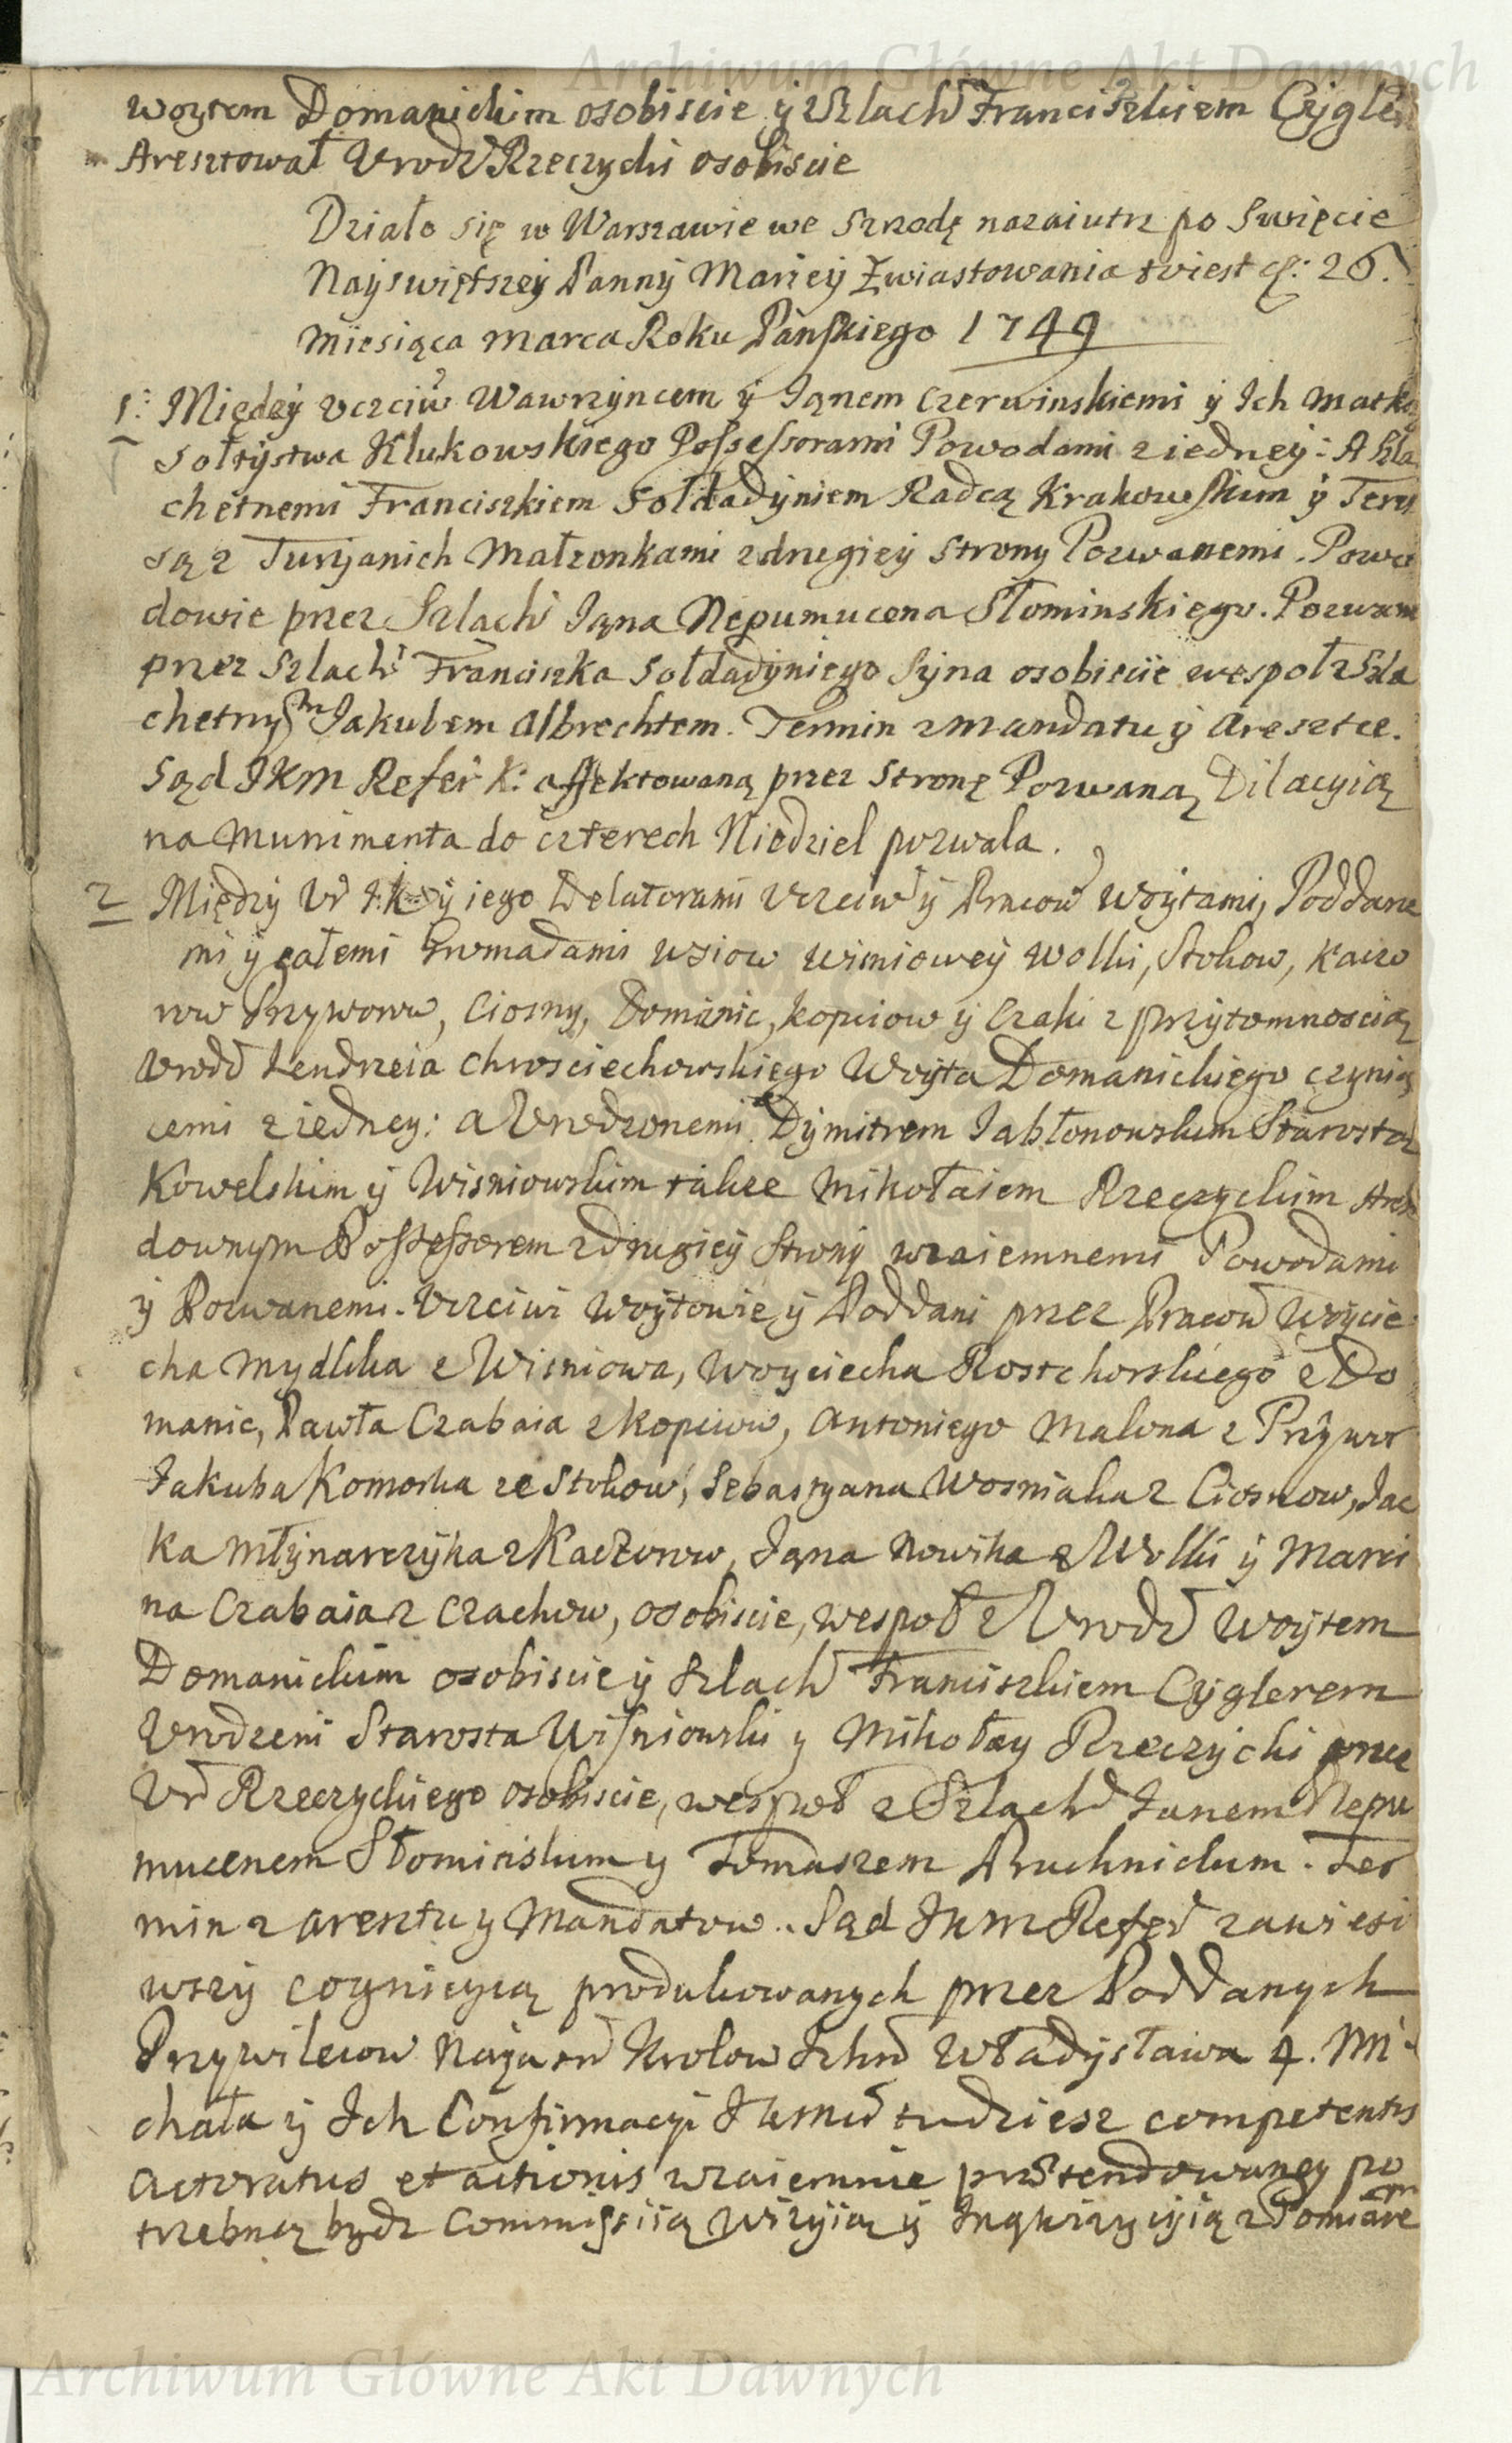 Archiwum Główne Akt Dawnych
woytem Domanickim osobiscie ÿ Szlach Franciszkiem Cÿgler
Aresztował Vrodz Rzeczycki osobiscie
Działo się w Warszawie we Szrodę nazaiutrz po Swięcie
Nayswiętszeÿ Pannÿ Mariey Zwiastowania to iest d: 26.
Miesiąca Marca Roku Pańskiego 1749
1: Międzÿ Vczciw Wawrzyncem ÿ Ianem Czerwinskiemi ÿ Ich Matką
Sołtÿstwa Klukowskiego Possessorami Powodami z iedneÿ: A Szla
chetnemi Franciszkiem Sołdadÿniem Radcą Krakowskim ÿ Tere
są z Turÿanich Małzonkami z drugieÿ Strony Pozwanemi. Powo
dowie przez Szlach Iana Nepumucena Słominskiego. Pozwani
przez Szlach Franciszka Sołdadÿniego Sÿna osobiscie wespoł z Szla
chetnym Iakubem Albrechtem. Termin z Mandatu ÿ Aresztu.
Sąd IKM Refer K: affektowaną przez Stronę Pozwaną Dilacyią
na Munimenta do czterech Niedziel pozwala.
2 Międzÿ Vr ÿ iego Delatorami Vczciw ÿ Pracow Woÿtami, Poddane
mi ÿ całemi Gromadami wsiow Wisniowey Wolki, Stokow, Kaczo
row Przywor, Ciosny, Domanic, Kopciow ÿ Czaki z przÿtomnoscią
Vrodz Jendrzeia Chrosciechowskiego Woÿta Domanickiego czynią
cemi z iedney: a Vrodzonemi Dÿmitrem Iabłonowskim Starostą
Kowelskim ÿ Wisniowskim takze Mikołaiem Rzeczyckim Aren
downym Possessorem z drugieÿ Stronÿ wzaiemnemi Powodami
ÿ Pozwanemi. Vczciwi Woÿtowie ÿ Poddani przez Pracow Woycie
cha Mydlka z Wisniowa, Woyciecha Rostchorskiego z Do
manic, Pawła Czabaia z Kopciow, Antoniego Malona z Przÿwor
Iakuba Komorka ze Stokow, Sebastyana Wosniaka z Ciosnow, Iac
ka Młÿnarczÿka z Kaczorow, Iana Nowika z Wolki ÿ Marci
na Czabaia z Czachow, osobiscie, wespoł z Vrodz Woÿtem
Domanickim osobiscie ÿ Szlach Franciszkiem Cyglerem
Vrodzeni Starosta Wisniowski y Mikołay Rzeczÿcki przez
Vr Rzeczyckiego osobiscie, wespoł z Szlach Ianem Nepu
mucenem Słominskim y Tomaszem Pruchnickim. Ter
min z Aresztu y Mandatow. Sąd IKM Refer zawiesi
wszÿ cognicyią produkowanych przez Poddanych
Przywileiow Nayiasn Krolow Ichm Władÿsława 4. Mi
chała ÿ Ich Confirmacyi tudziesz competentis
actoratus et actionis wzaiemnie prætendowaney po
trzebną bydz Commissiią Wizÿią ÿ Inqwizycÿią z Pomiare
Archiwum Główne Akt Dawnych